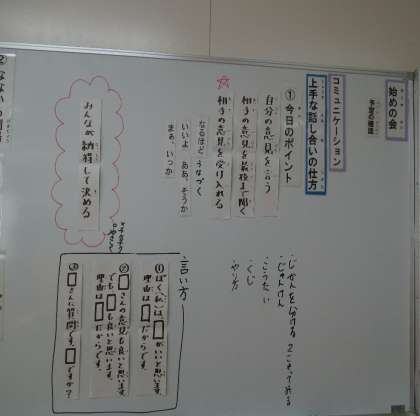 始めの会
予定の確認
コミュニケーション
上手な話し合いの仕方
①今日のポイント
自分の意見を言う
相手の意見を最後まで聞く
☆相手の意見を受け入れる
なるほど うなづく
いいよ ああ、そうか
まあ、いっか
みんなが納得して決める
言い方
①ぼく(私)は、□がいいと思います。
理由は□だからです。
②□さんの意見も良いと思います。
でも□も良いと思います。
理由は□だからです。
③□さんに質問です。□ですか?
・じかんを分ける
・じゃんけん
・こうたい
・くじ
・やり方